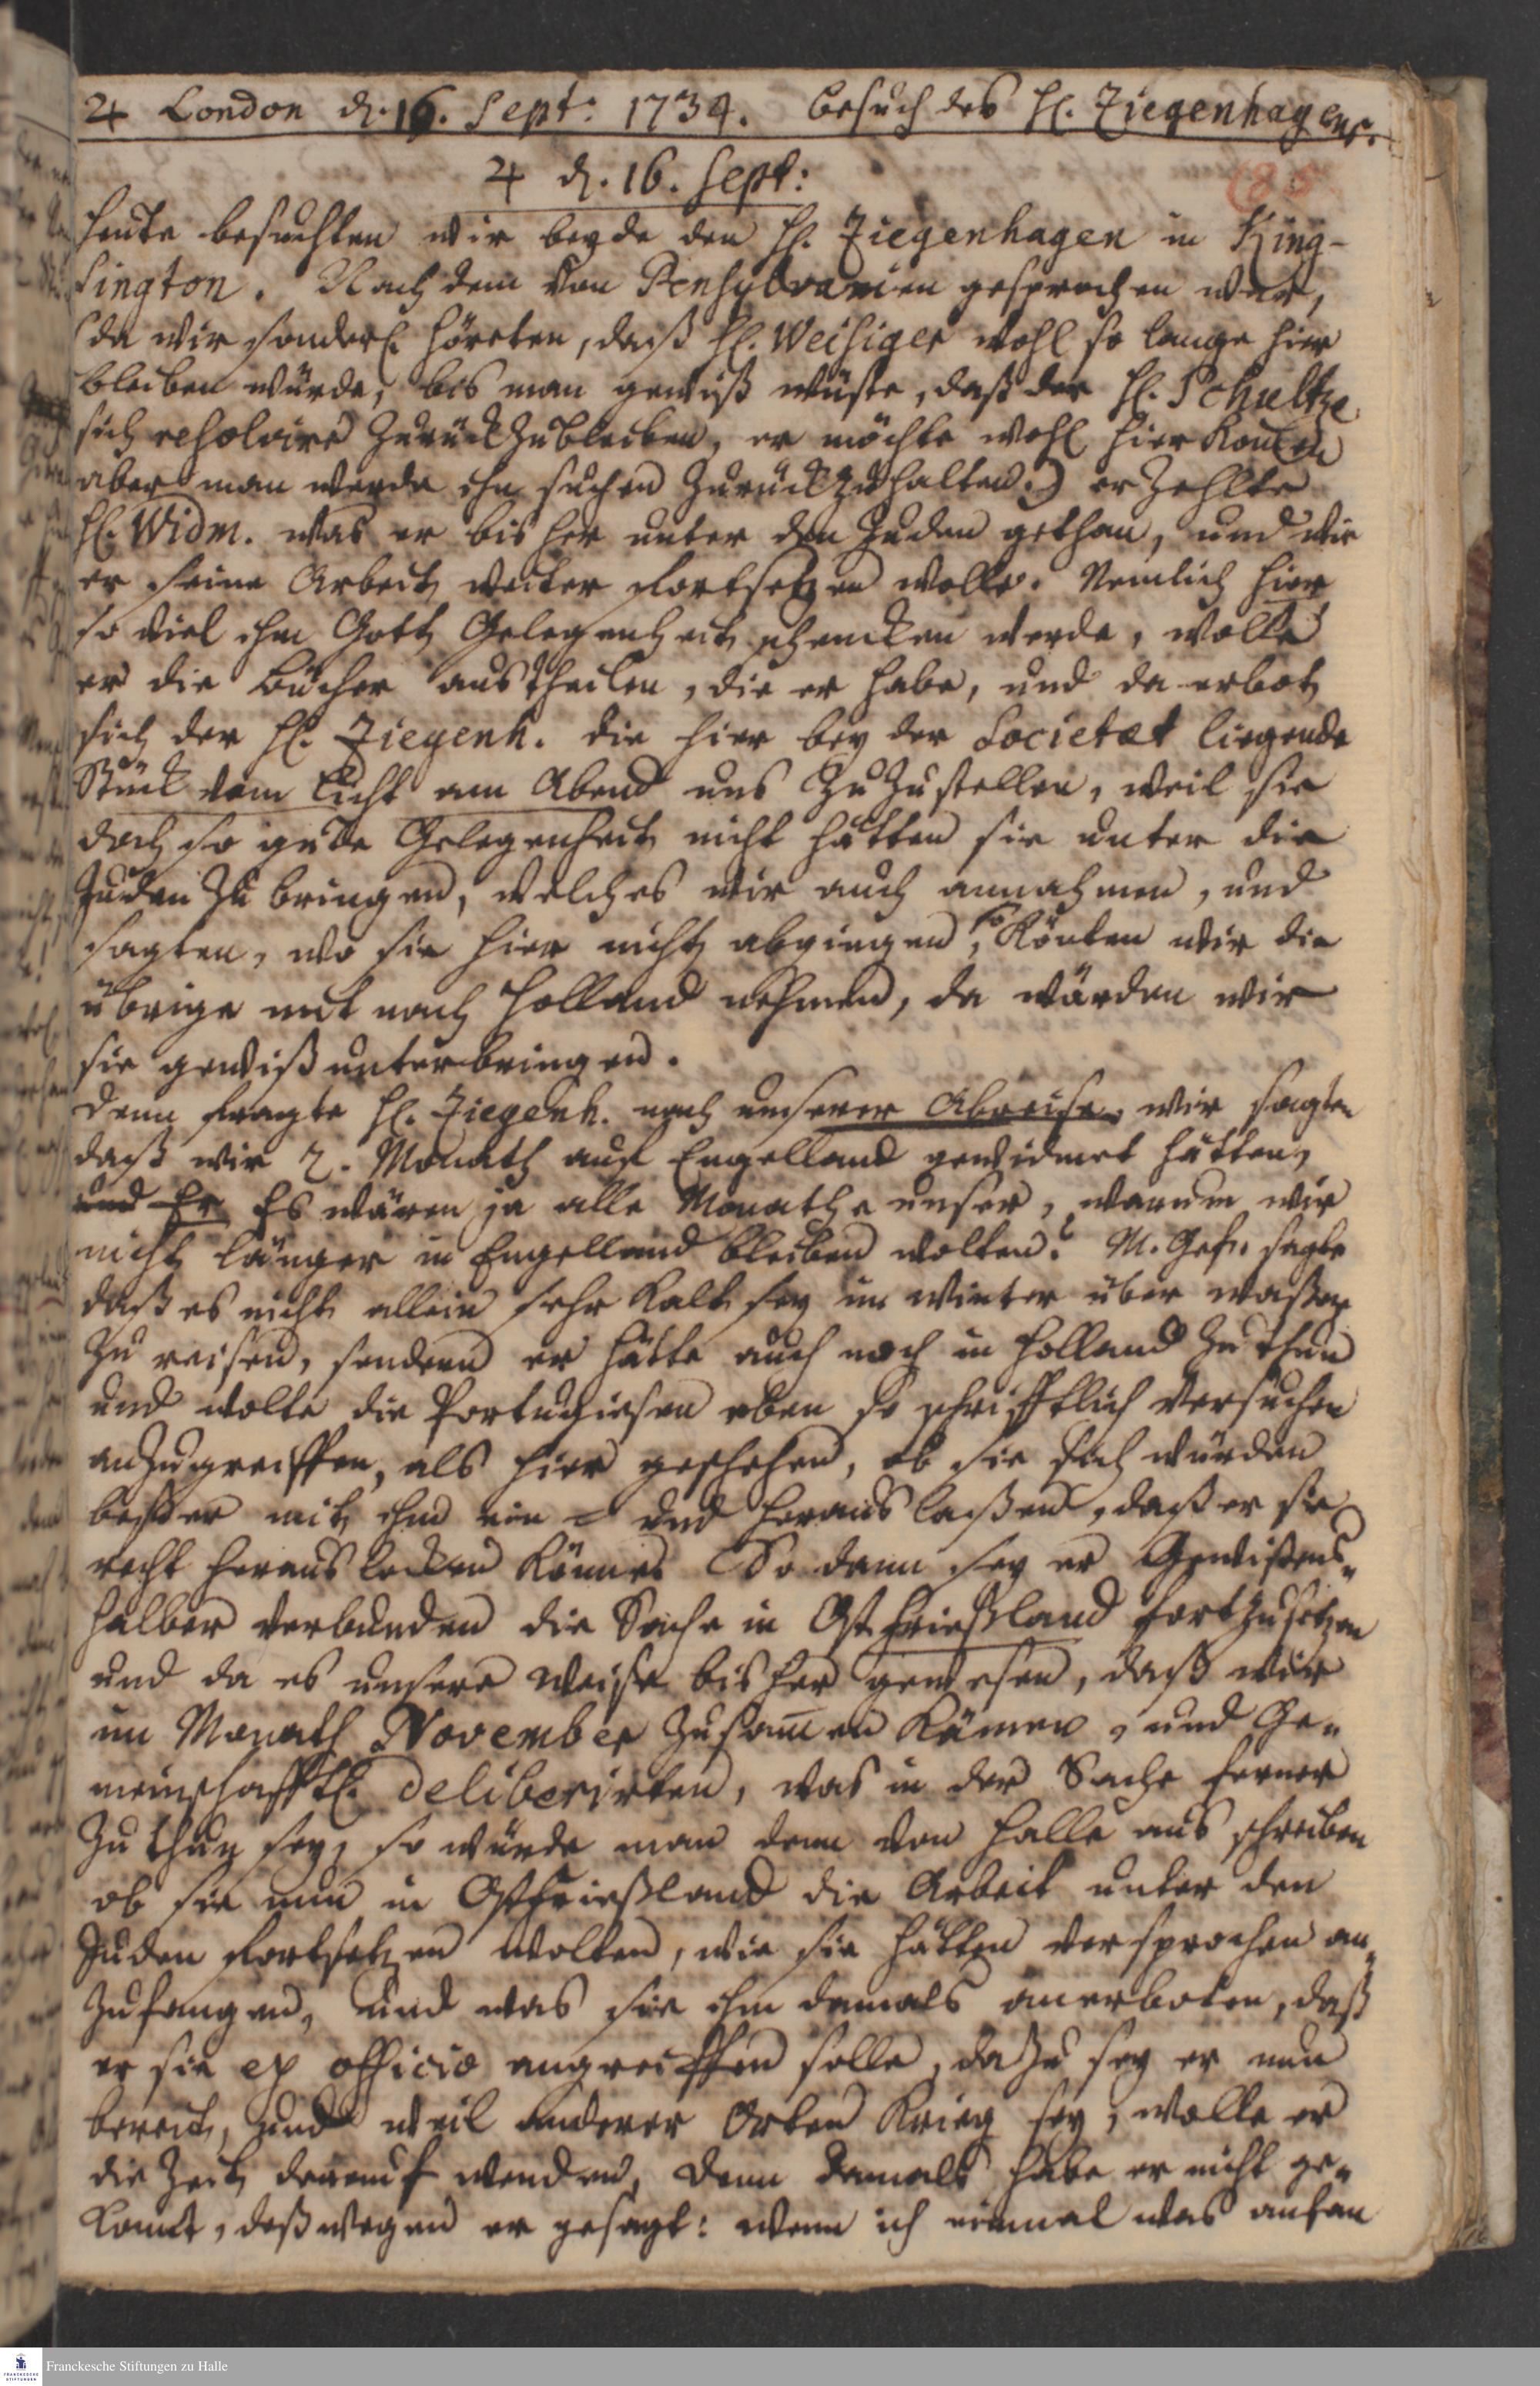 ♃ London d. 16. Sept: 1734. Besuch des H. Ziegenhagens.
♃ d. 16. Sept:
(85
Heute besuchten wir beyde den H. Ziegenhagen in King-
sington. Nach dem von Pensylvanien gesprochen war,
(da wir sonderl. höreten, daß H. Weisiger wohl so lange hier
bleiben würde, bis man gewiß wüste, daß der H. Schultze
sich resolvire zurückzubleiben, er möchte wohl hier kom̅en
aber man werde ihn suchen zurückzuhalten:) erzehlte
H. Widm. was er bisher unter den Juden gethan, und wie
er seine Arbeit weiter fortsetzen wolle. Nemlich hier
so viel ihm Gott Gelegenheit schencken werde, wolle
er die Bücher austheilen, die er habe, und da erbot
sich der H. Ziegenh. die hier bey der Societæt liegende
Stück vom Licht am Abend uns zuzustellen, weil sie
doch so gute Gelegenheit nicht hätten sie unter die
Juden zu bringen, welches wir auch annahmen, und
sagten, wo sie hier nicht abgingen, so könten wir die
übrige mit nach Holland nehmen, da würden wir
sie gewiß unterbringen.
Denn fragte H. Ziegenh. nach unserer Abreise, wir sagten
daß wir 2. Monath auf Engelland gewidmet hätten,
und Er Es wären ja alle Monathe unser, warum wir
nicht länger in Engelland bleiben wolten? M. Gef. sagte
daß es nicht allein sehr kalt sey im Winter über Wasser
zu reisen, sondern er hätte auch noch in Holland zu thun
und wolte die Portugiesen eben so schrifftlich versuchen
anzugreiffen, als hier geschehen, ob sie sich würden
besser mit ihm ein = und heraus laßen, daß er sie
recht heraus locken könne. So dann sey er Gewißens-
halber verbunden die Sache in Ost Frießland fortzusetzen
und da es unsere Weise bisher gewesen, daß wir
im Monath November zusam̅en kämen, und Ge-
meinschafftl. deliberirten, was in der Sache ferner
zu thun sey, so würde man denn von Halle aus schreiben
ob sie nun in Ostfrießland die Arbeit unter den
Juden fortsetzen wolten, wie sie hätten versprochen an-
zufangen, und was sie ihm damals anerboten, daß
er sie ex officio angreiffen solle, dazu sey er nun
bereit, und weil anderer Orten Krieg sey, wolle er
die Zeit darauf wenden, denn damals habe er nicht ge-
konnt, deßwegen er gesagt: wenn ich einmal was anfan
Franckesche Stiftungen zu Halle